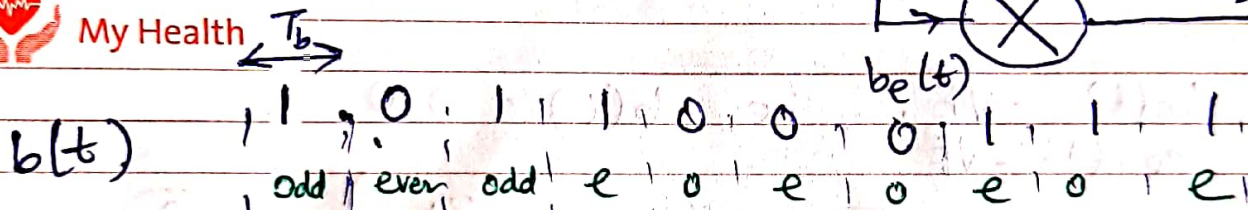 My Health
T_b
b_e(t)
b(t) 1 0 1 1 0 0 0 1 1 1
odd even odd e o e o e o e